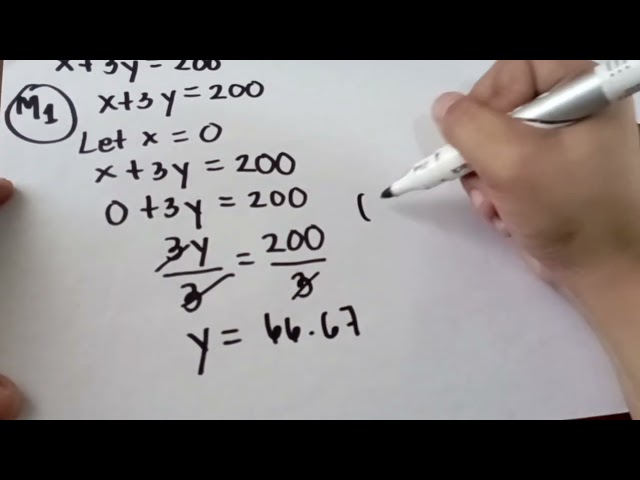 x+3y=200
M1
x+3y=200
Let x=0
x+3y=200
0+3y=200
3y/3=200/3
y=66.67
(